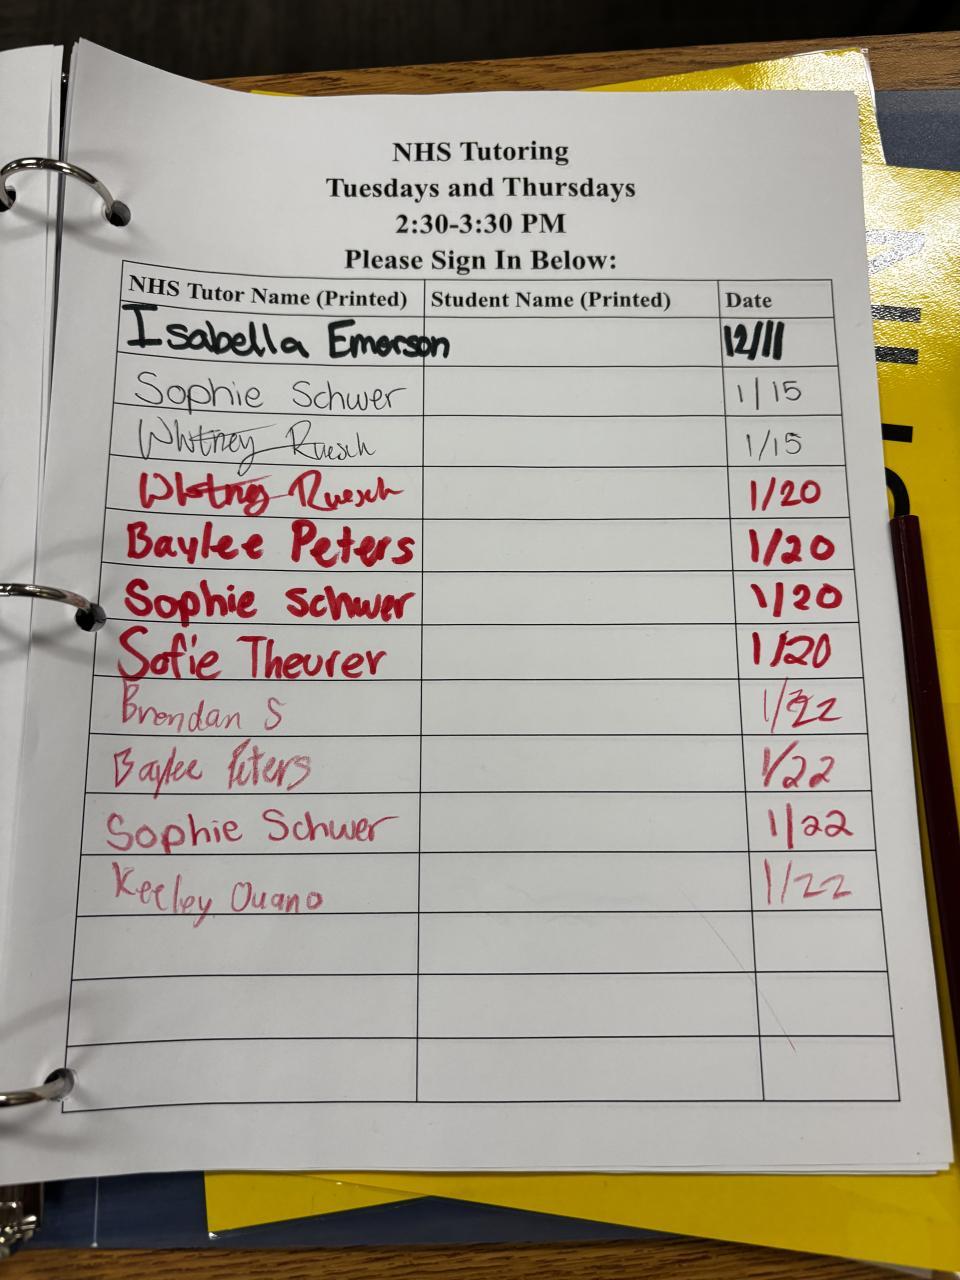 NHS Tutoring
Tuesdays and Thursdays
2:30-3:30 PM
Please Sign In Below:
NHS Tutor Name (Printed) Student Name (Printed) Date
Isabella Emerson 12/11
Sophie Schwer 1/15
Whitney Ruesch 1/15
Whitney Ruesch 1/20
Baylee Peters 1/20
Sophie Schwer 1/20
Sofie Theurer 1/20
Brendan S 1/22
Baylee Peters 1/22
Sophie Schwer 1/22
Keeley Ouano 1/22